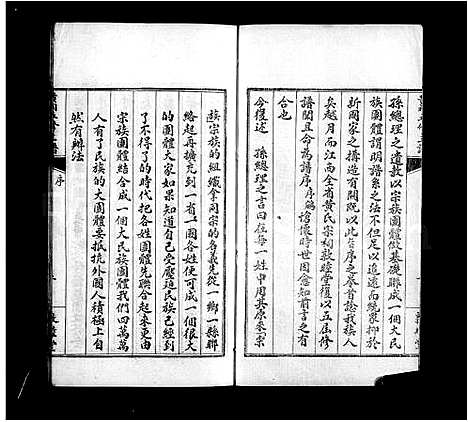 孫總理之遺教以宗族團體做基礎聯成一個大民
族團體謂明譜系之法不但足以追遠而續眾抑於
新國家之搆造有關既以此書序之拳拳首諗我族人
矣越月而江西全省黃氏宗祠敦睦堂復以五屆修
譜開局日命為譜序序觴滄懷時世因愈知前言之
合也
今復述 孫總理之言曰在每一姓中用其原來宗
族宗族的組織拿同宗的名義先從一鄉一縣聯
絡起再擴充到一省一國各姓便可成一個很大
的團體大家如果知道自己受壓迫民族已經到
了不得了的時代把各姓團體先聯合起來更由
宗族團體結合成一個大民族團體我們四萬萬
人有了民族的大團體要抵抗外國人積極上自
然有辦法
序